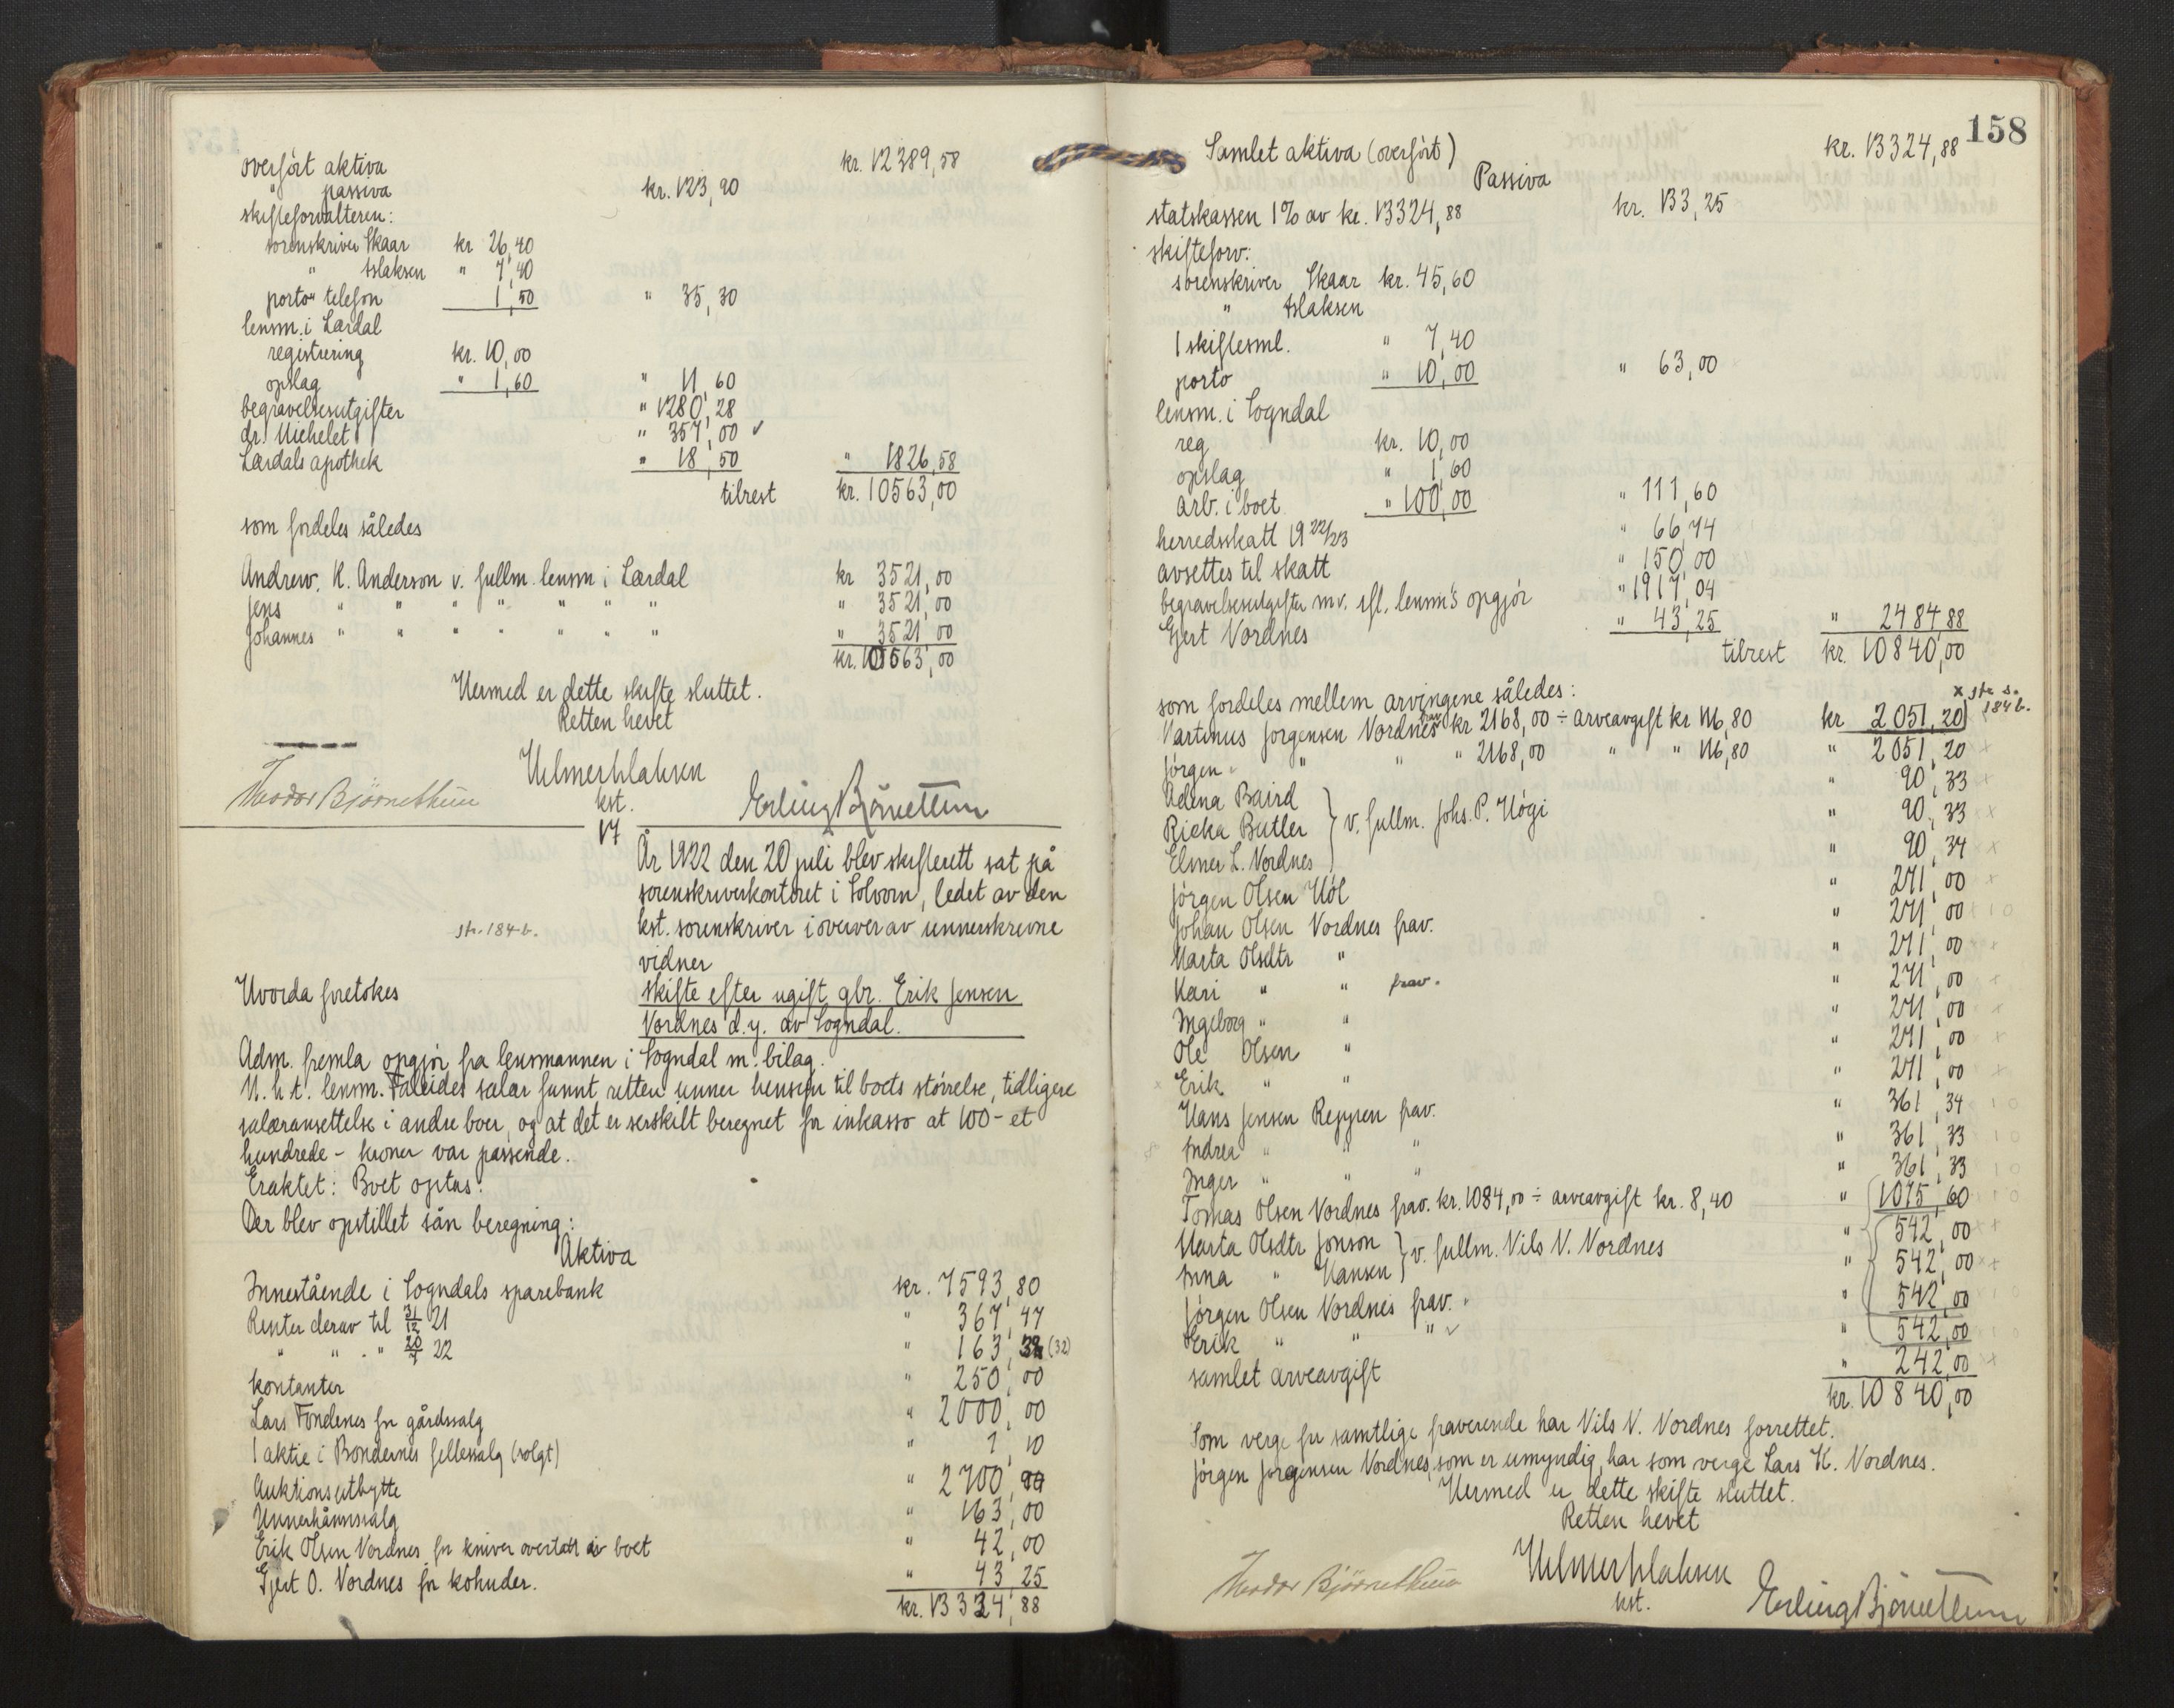 overført aktiva kr. 12389,58
" passiva kr. 123,90
skifteforvalteren:
sorenskriver Skaar kr 26,40
" Aslaksen " 7,40
porto " telefon 1,50 " 35,30
lensm. i Lærdal
registrering kr. 10,00
opslag " 1,60 " 11,60
begravelsesutgifter " 1280,28
dr. Michelet " 357,00 ✓
Lærdals apothek " 18,50 " 1826,58
tilrest kr. 10563,00
som fordeles således
Andrew. K. Anderson v. fullm. lensm i Lærdal kr 3521,00
Jens " " " " " " " " 3521,00
Johannes " " " " " " " " 3521,00
kr. 10563,00
Hermed er dette skifte sluttet.
Retten hevet
Hilmer Aslaksen
kst.
Theodor Bjørnethun Erling Bjørnethun
17
År 1922 den 20 juli blev skifterett sat på
sorenskriverkontoret i Solvorn, ledet av den
kst. sorenskriver i overver av unnerskrevne
str. 184 b.
vidner
Hvorda foretokes skifte efter ugift gbr. Erik Jensen
Nordnes d.y. av Sogndal.
Adm. fremla opgjør fra lensmannen i Sogndal m. bilag.
M. h. t. lensm. Faleides salær fannt retten unner hensyn til boets størrelse, tidligere
salæransettelse i andre boer, og at det er serskilt beregnet for inkasso at 100 - et
hundrede - kroner var passende.
Eraktet: Boet optas.
Der blev opstillet sån beregning:
Aktiva
Innestående i Sogndals sparebank kr. 7593,80
Renter derav til 31/12 21 " 367,47
" " . " 20/7 22 " 163,32 (32)
kontanter " 250,00
Lars Fondenes for gårdssalg " 2000,00
1 aktie i Bøndernes fellessalg (solgt) " 1,10
Auktionsutbytte " 2700,94
Unnerhånnssalg " 163,00
Erik Olsen Nordnes for kniver overtatt av boet " 42,00
Gjert O. Nordnes for kohuder. " 43,25
kr. 13324,88
158
Samlet aktiva (overført) kr. 13324,88
Passiva
statskassen 1% av kr. 13324,88 kr. 133,25
skifteforv:
sorenskriver Skaar kr. 45,60
" Aslaksen
1 skiftesml. " 7,40
porto " 10,00 " 63,00
lensm. i Sogndal
reg kr. 10,00
opslag " 1,60
arb. i boet " 100,00 " 111,60
herredsskatt 1922/23 " 66,74
avsettes til skatt " 150,00
begravelsesutgifter m.v. efl. lensm's opgjør " 1917,04
Gjert Nordnes " 43,25 " 2484,88
tilrest kr. 10840,00
som fordeles mellem arvingene således: x str s. 184 b.
Martinus Jørgensen Nordnes frav kr 2168,00 ÷ arveavgift kr 116,80 kr 2051,20
Jørgen " " " " 2168,00 " " 116,80 " 2051,20
Adena Baird " 90,33
Ricka Butler } v. fullm. Johs. P. Høgi " 90,33
Elmer L. Nordnes " 90,34
Jørgen Olsen Høl " 271,00
Johan Olsen Nordnes frav. " 271,00
Marta Olsdtr " " 271,00
Kari " " frav. " 271,00
Ingeborg " " " 271,00
Ole Olsen " " 271,00
Erik " " " 271,00
Hans Jensen Reppen frav. " 361,34
Andrea " " " " 361,33
Inger " " " " 361,33
Tomas Olsen Nordnes frav. kr. 1084,00 ÷ arveavgift kr. 8,40 " 1075,60
Marta Olsdtr Jonson } v. fullm. Nils N. Nordnes " 542,00
Anna " Hansen " 542,00
Jørgen Olsen Nordnes frav. " 542,00
Erik " " " ✓ " 542,00
samlet arveavgift " 242,00
kr. 10840,00
Som verge for samtlige fraverende har Nils N. Nordnes forrettet.
Jørgen Jørgensen Nordnes, som er umyndig, har som verge Lars K. Nordnes.
Hermed er dette skifte sluttet.
Retten hevet
Hilmer Aslaksen
kst.
Theodor Bjørnethun Erling Bjørnethun